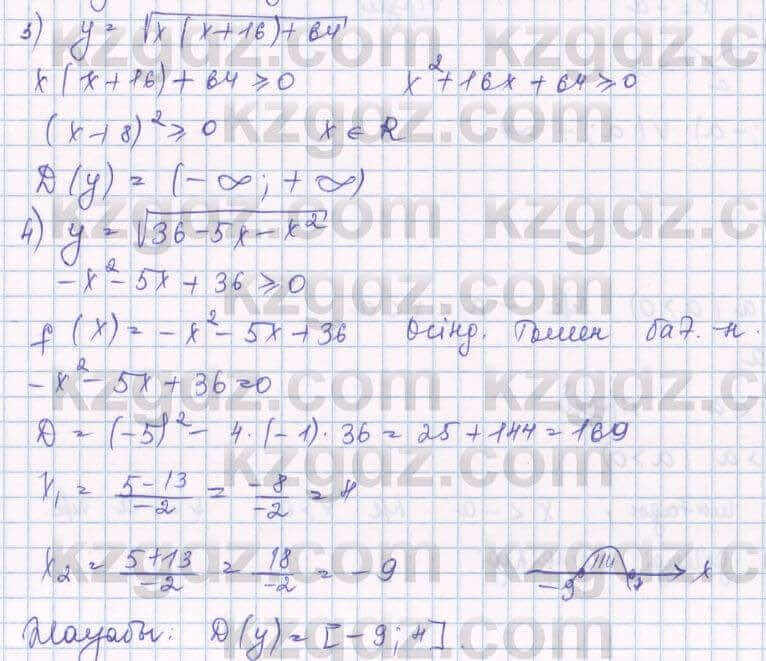 3) y = √x(x+16)+64
x(x+16)+64 ⩾ 0 x²+16x+64 ⩾ 0
(x+8)² ⩾ 0 x ∈ R
D(y) = (-∞; +∞)
4) y = √36-5x-x²
-x²-5x+36 ⩾ 0
f(x) = -x²-5x+36 төмен бағ.
-x²-5x+36=0
D = (-5)² - 4·(-1)·36 = 25+144 = 169
x₁ = (5-13)/(-2) = (-8)/(-2) = 4
x₂ = (5+13)/(-2) = 18/(-2) = -9
-9 4 x
Жауабы: D(y) = [-9; 4].
kzgdz.com